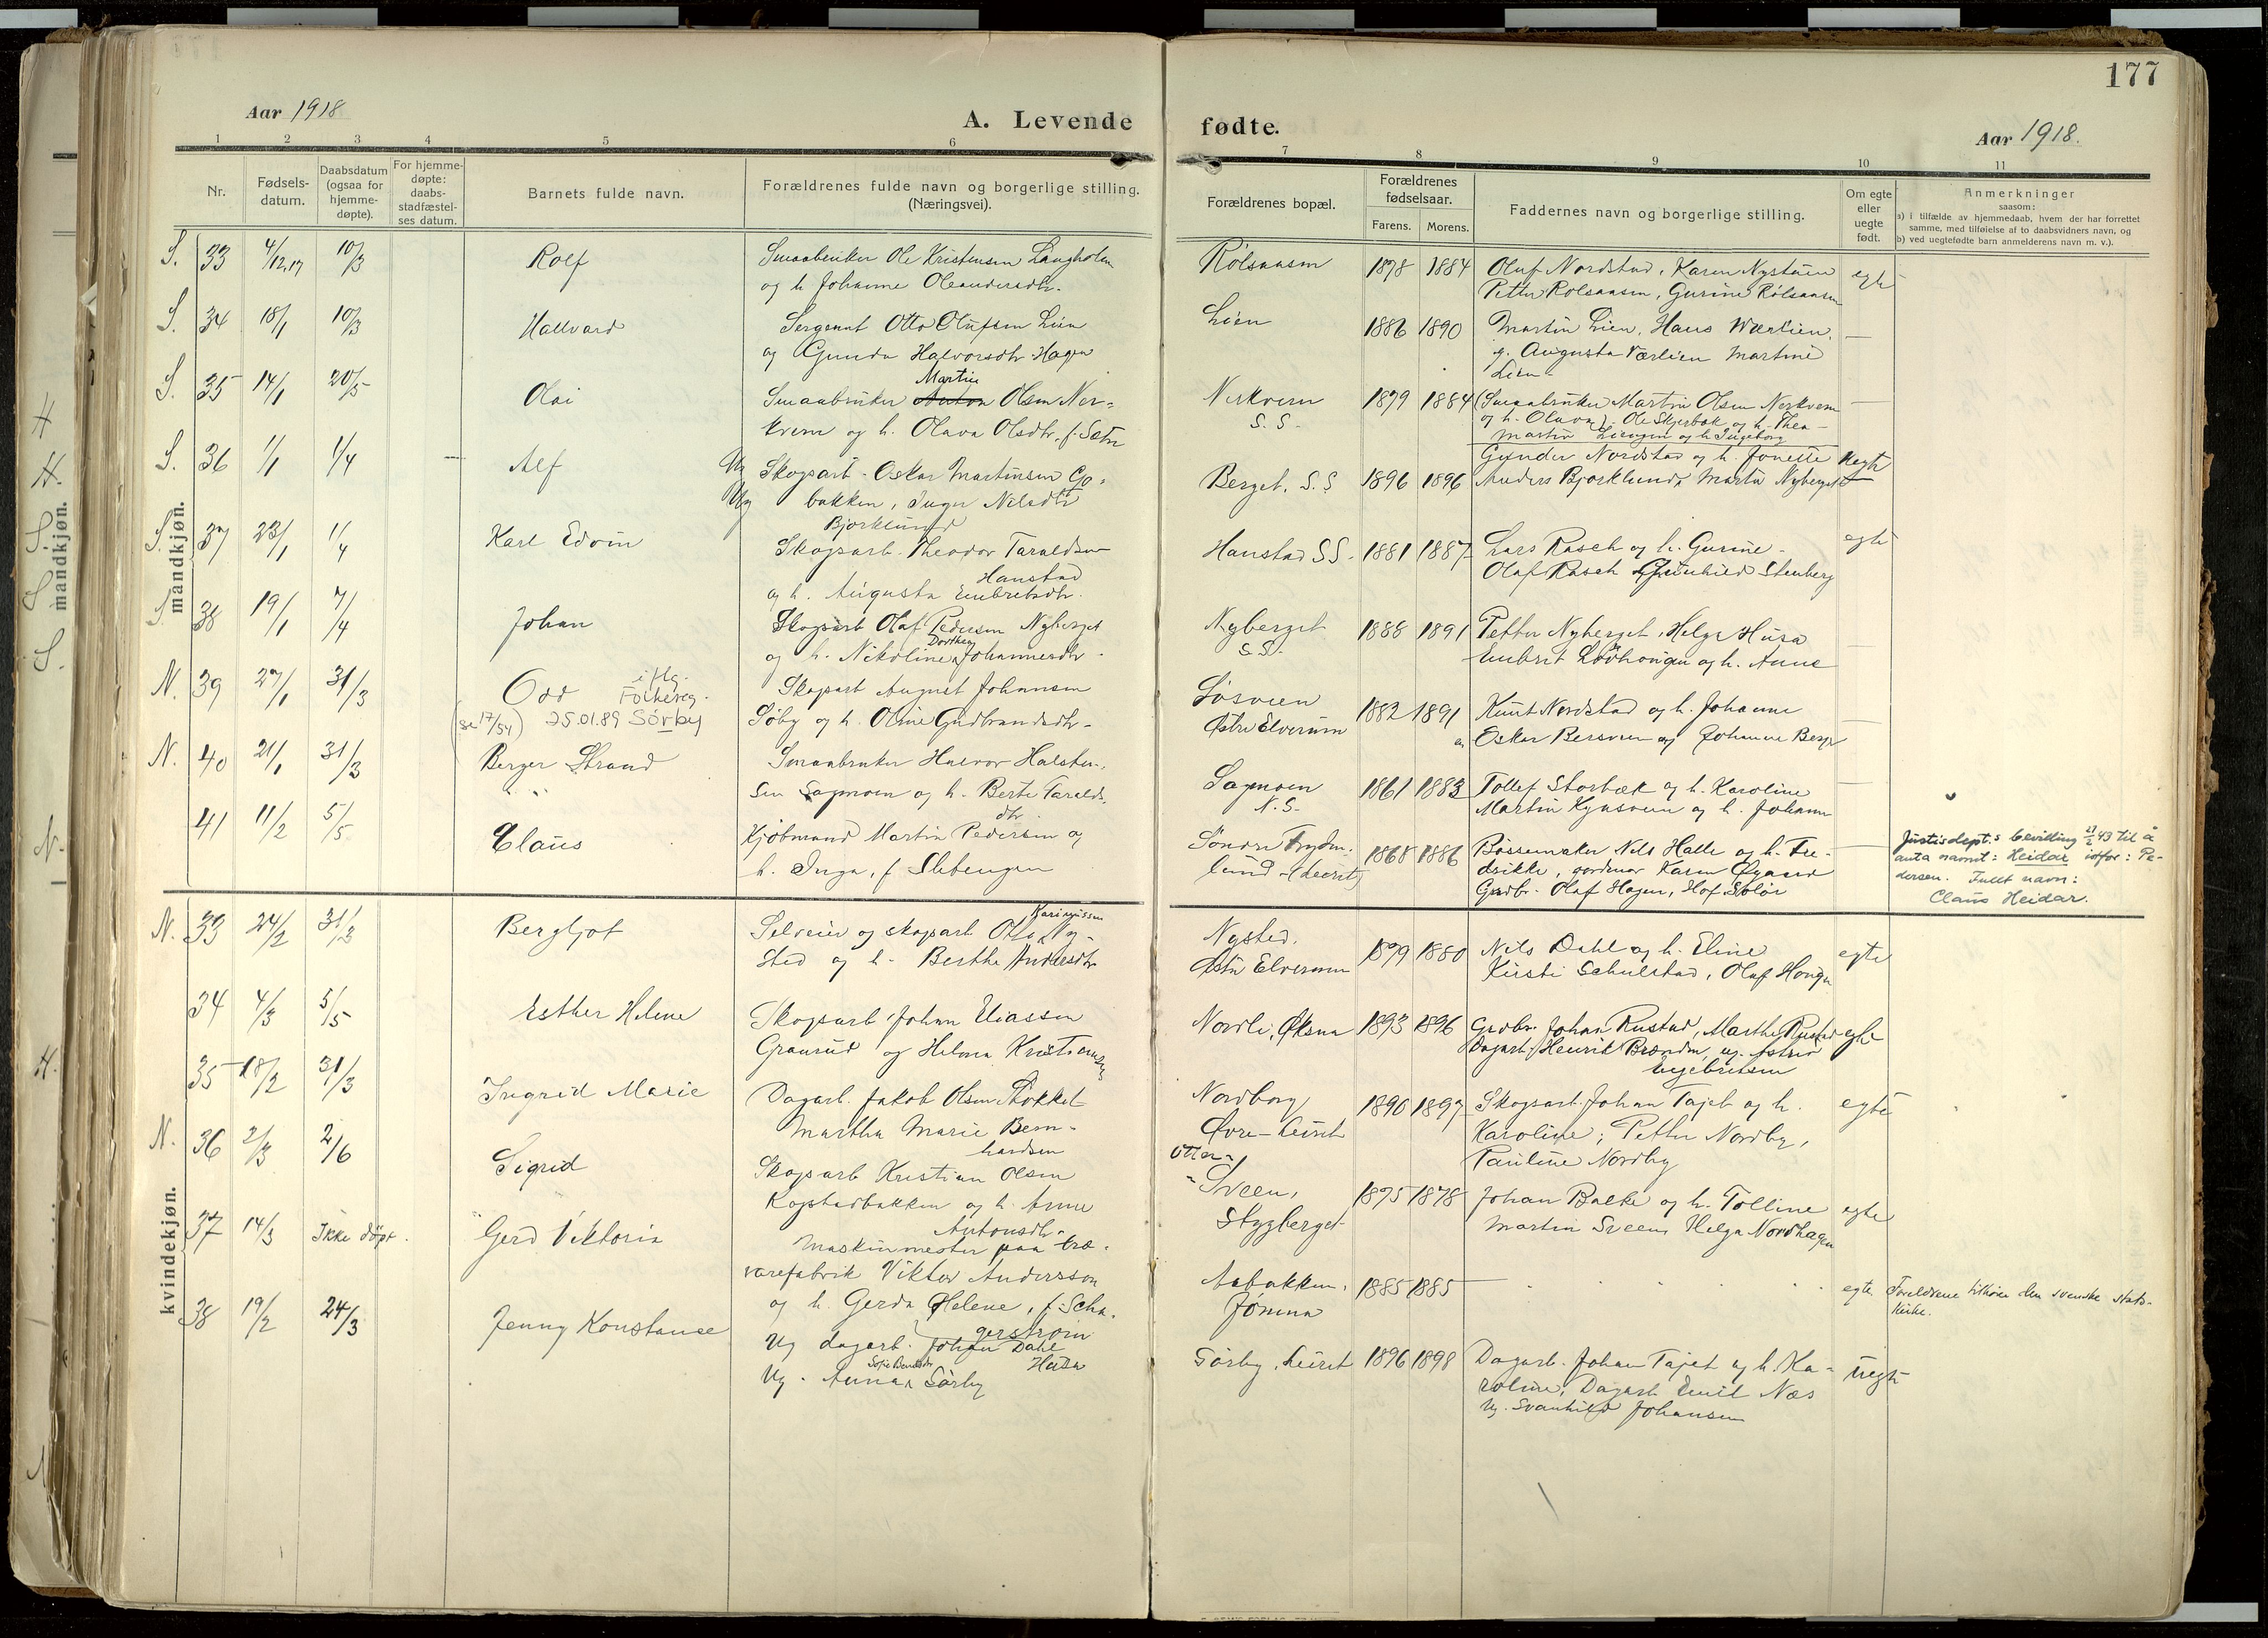 177
Aar 1918
A. Levende
fødte.
Aar 1918.
1 2 3 4 5 6
7 8 9 10 11
Nr.
Fødsels-
datum.
Daabsdatum
(ogsaa for
hjemme-
døpte).
For hjemme-
døpte:
daabs-
stadfæstel-
ses datum.
Barnets fulde navn.
Forældrenes fulde navn og borgerlige stilling.
(Næringsvei).
Forældrenes bopæl.
Forældrenes
fødselsaar.
Farens. Morens.
Faddernes navn og borgerlige stilling.
Om egte
eller
uegte
født.
Anmerkninger
saasom:
a) i tilfælde av hjemmedaab, hvem der har forrettet
samme, med tilføielse av to daabsvidners navn, og
b) ved uegtefødte barn anmelderens navn m. v.).
mandkjøn.
S. 33 4/12,17 10/3 Rolf
Smaabruker Ole Kristensen Langholm
og h. Johanne Oleandersdtr.
Rölsaasen 1878 1884
Oluf Nordstad, Karen Nystuen
Petter Rölsaasen, Gurine Rölsaasen
egte
S. 34 18/1 10/3 Hallvard
Sergeant Otto Olufsen Lien
og Gunda Halvorsdtr. Hagen
Lien 1886 1890
Martin Lien, Hans Værlien,
g. Augusta Værlien Martine
Lien
—
S. 35 14/1 20/5 Olai
Martin
Smaabruker Anton Olsen Ner=
kvern og h. Olava Olsdtr. f. Setre
Nerkvern
S. S. 1879 1884
(Smaabruker Martin Olsen Nerkvern
og h. Olava). Ole Skjerbæk og h. Thea—
Martin og h. Ingeborg
—
S. 36 1/1 1/4 — Alf
Ug Skogsarb. Oskar Martinsen Go=
Ug bakken, Inger Nilsdtr
Bjorklund
Berget, S.S 1896 1896
Gunder Nordstad og h. Jonette
Anders Bjorklund, Marta Nyberget
Uegte
S. 37 23/1 1/4 Karl Edvin
Skogsarb. Theodor Taraldsen
Hanstad
og h. Augusta Embretsdtr.
Hanstad S S. 1881 1887
Lars Rasch og h. Gurine—
Olaf Rasch Gunhild Stenberg
egte
S. 38 19/1 7/4 Johan
Skogsarb Olaf Pedersen Nyberget
Dorthea
og h. Nikoline Johannesdtr.
Nyberget
S.S. 1888 1891
Petter Nyberget, Helga Husa
Embret Lövhaugen og h. Anne
—
N. 39 27/1 31/3 Odd
iflg.
Folkereg.
(se 17/54) 25.01.89 Sörby
Skogsarb August Johansen
Söby og h. Oline Gudbrandsdtr.
Søsveen
Østre Elverum 1882 1891
Knut Nordstad og h. Johanne
Oskar Bersveen og Johanne Berge
—
N. 40 21/1 31/3 Berger Strand
Smaabruker Halvor Halsten-
sen Sagmoen og h. Berte Taralds-
dtr.
Sagmoen
N. S. 1861 1883
Tollef Storbæk og h. Karoline
Martin Kynsveen og h. Johanne
—
41 11/2 5/5 Claus
Kjöbmand Martin Pedersen og
h. Inga, f. Stebengen
Söndre Frydm.
lund (Leiret) 1868 1886
Bössemaker Nils Halle og h. Fre-
drikke, gordmor Karen Øgaard
Grdbr. Olaf Hagen, Hof Solör
Justisdept.s bevilling 23/2 43 til å
anta navnet: Heidar istfor: Pe-
dersen. Fullt navn:
Claus Heidar.
kvindekjøn.
N. 33 24/2 31/3 Bergljot
Karinussen
Selveier og skogsarb. Otto Ny-
sted og h. Berthe Andersdtr
Nysted.
Østre Elverum 1879 1880
Nils Dahl og h. Eline
Kirsti Schulstad, Olaf Haugen
egte
34 4/3 5/5 Esther Helene
Skogsarb. Johan Eliassen
Granrud og Helma Kristiansen
Nordli, Øksna 1893 1896
Grdbr. Johan Rustad, Marthe Rustad
Dagarb. Henrik Brænden, ug. Astrid
Engebretsen
egte
35 18/2 31/3 Ingrid Marie
Dagarb. Jakob Olsen Stokket
Martha Marie Bern-
hardsen
Nordborg
Övre- Leiret 1890 1897
Skogsarb. Johan Tajet og h.
Karoline; Petter Nordby,
Pauline Nordby
egte
N. 36 2/3 2/6 Sigrid
Skogsarb Kristian Olsen
Kopstadbakken og h. Anne
Antonsdtr.
Sveen,
Stygberget 1875 1878
Johan Bakke og h. Tolline
Martin Sveen, Helga Nordhagen
egte
37 14/3 Ikke döpt. Gerd Viktoria
Maskinmester paa træ-
varefabrik Viktor Andersson
og h. Gerda Helene, f. Scha-
gerström
Aabakken,
Jömna 1885 1885
— egte
Foreldrene tilhörer den svenske stats-
kirke.
38 19/2 24/3 Jenny Konstanse
Ug dagarb. Johan Dahl
Ug. Anna Sörby
Sörby, Leiret 1896 1898
Dagarb. Johan Tajet og h. Ka-
roline, Dagarb. Emil Næs
Ug. Svanhild Johansen
uegte